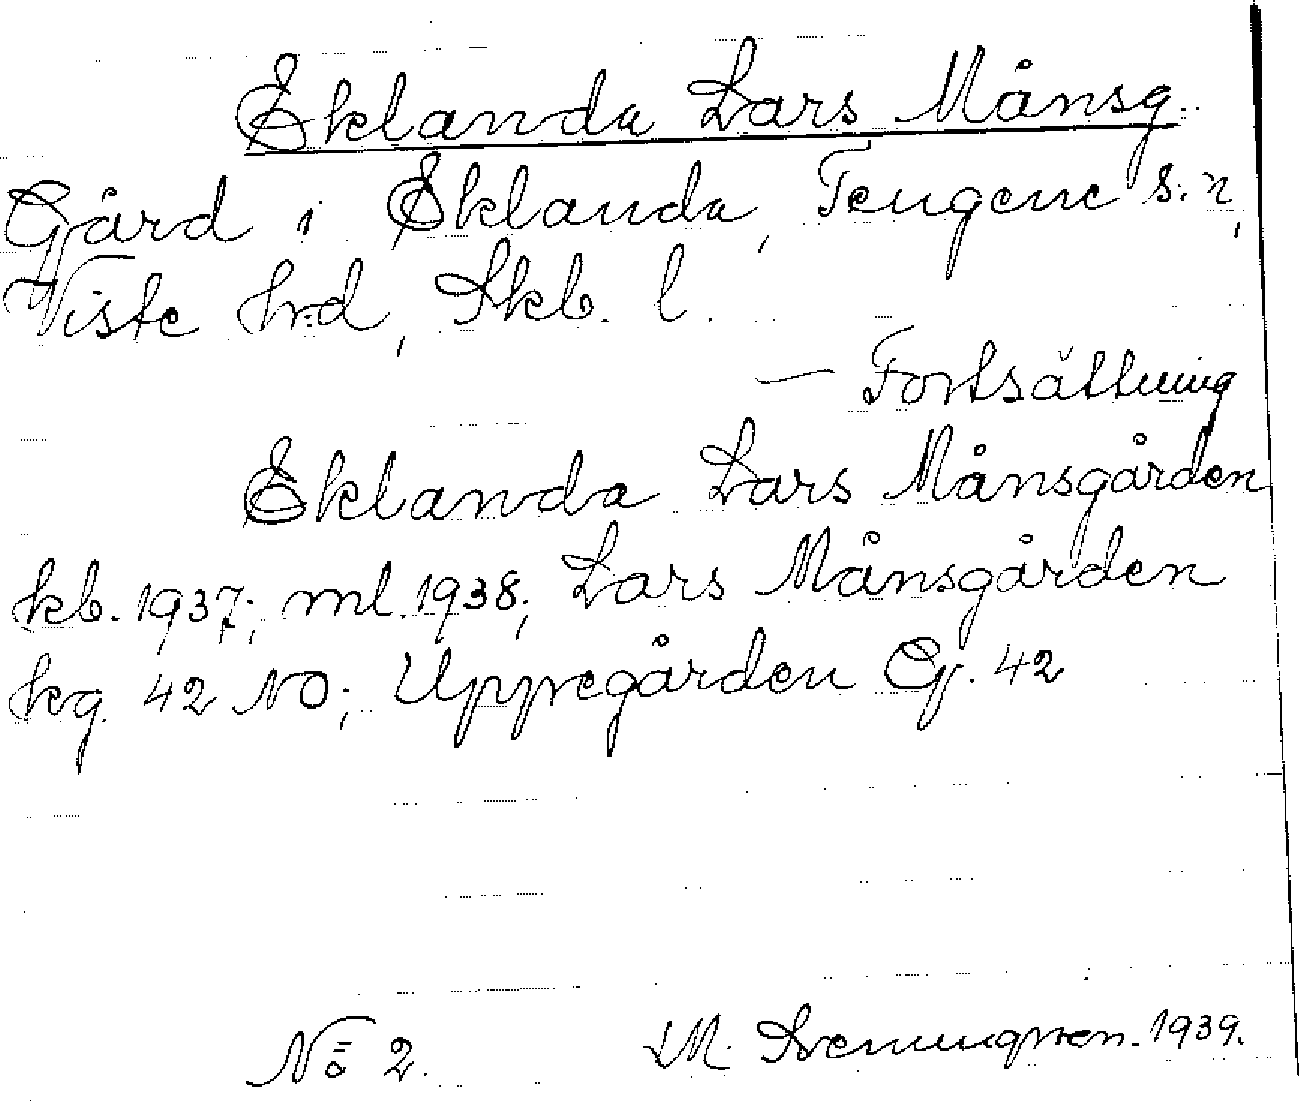 Eklanda Lars Månsg.
Gård i Eklanda, Tengene s:n,
Viste hrd, Skb. l.
— Fortsättning
Eklanda Lars Månsgården
kb. 1937; ml. 1938; Lars Månsgården
hrg. 42 NO; Uppregården Gj. 42
No 2. M. 1939.